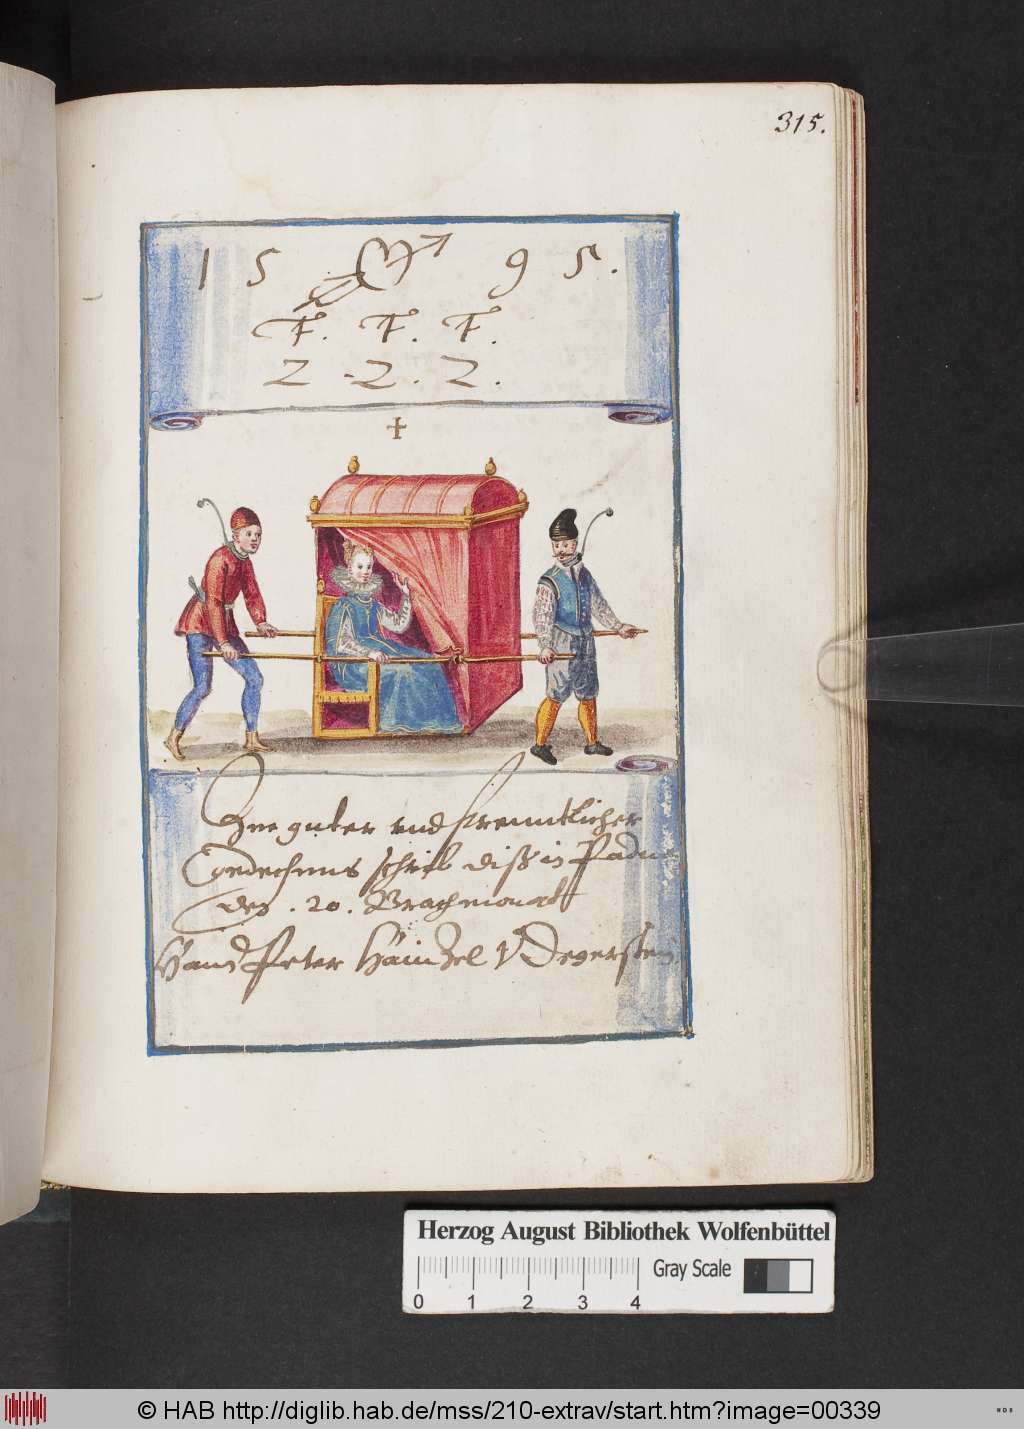 315.
15 95.
F. F. F.
Z. Z. Z.
Zue guter vnd freuntlicher
gedechnus schrib diß in Padua
den . 20 . Brachmonat
Hans Peter Häinzel V Degerstein
Herzog August Bibliothek Wolfenbüttel
Gray Scale
0 1 2 3 4
© HAB http://diglib.hab.de/mss/210-extrav/start.htm?image=00339